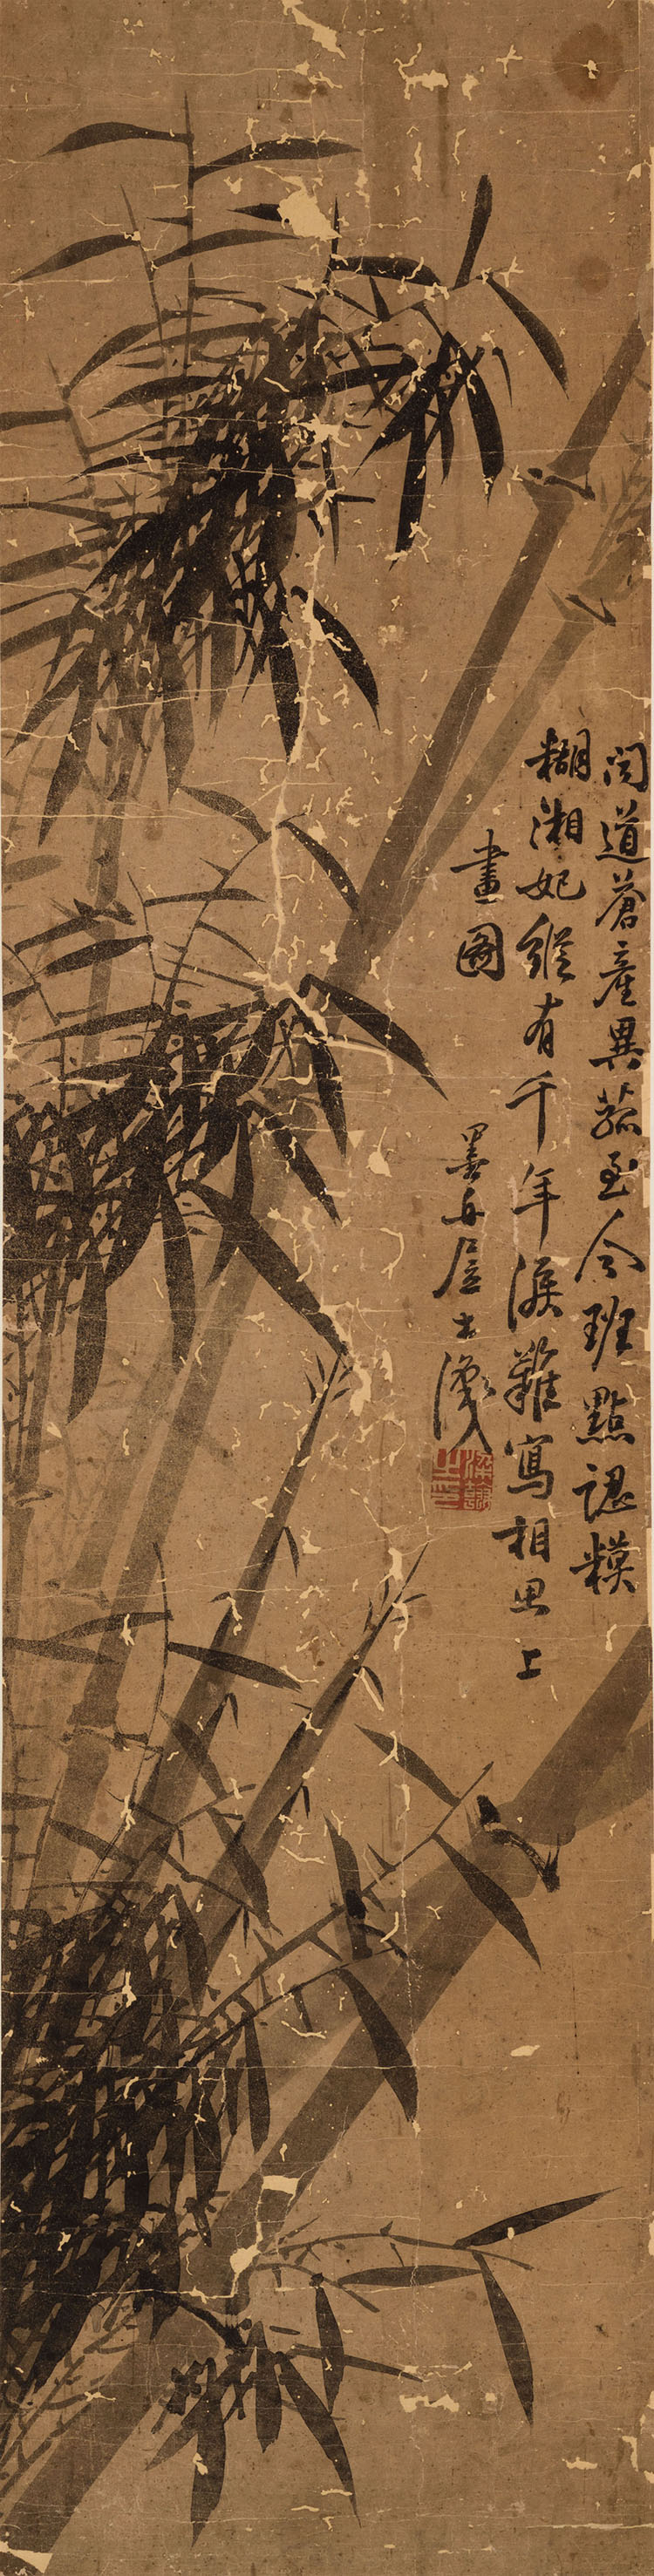 聞道蒼産異菰至今班點認糢
糊湘妃縱有千年淚難寫相思上
畫圖
墨舟居士